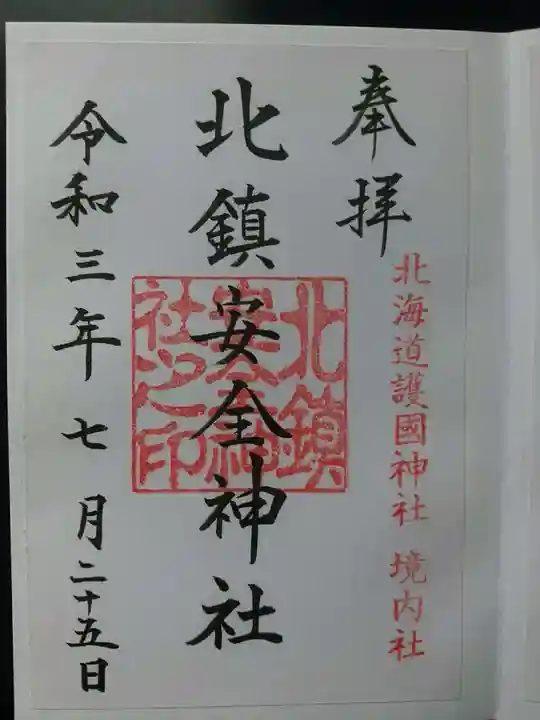 奉拝
北海道護國神社 境内社
北鎮安全神社
北鎮
安全神
社之印
令和三年七月二十五日